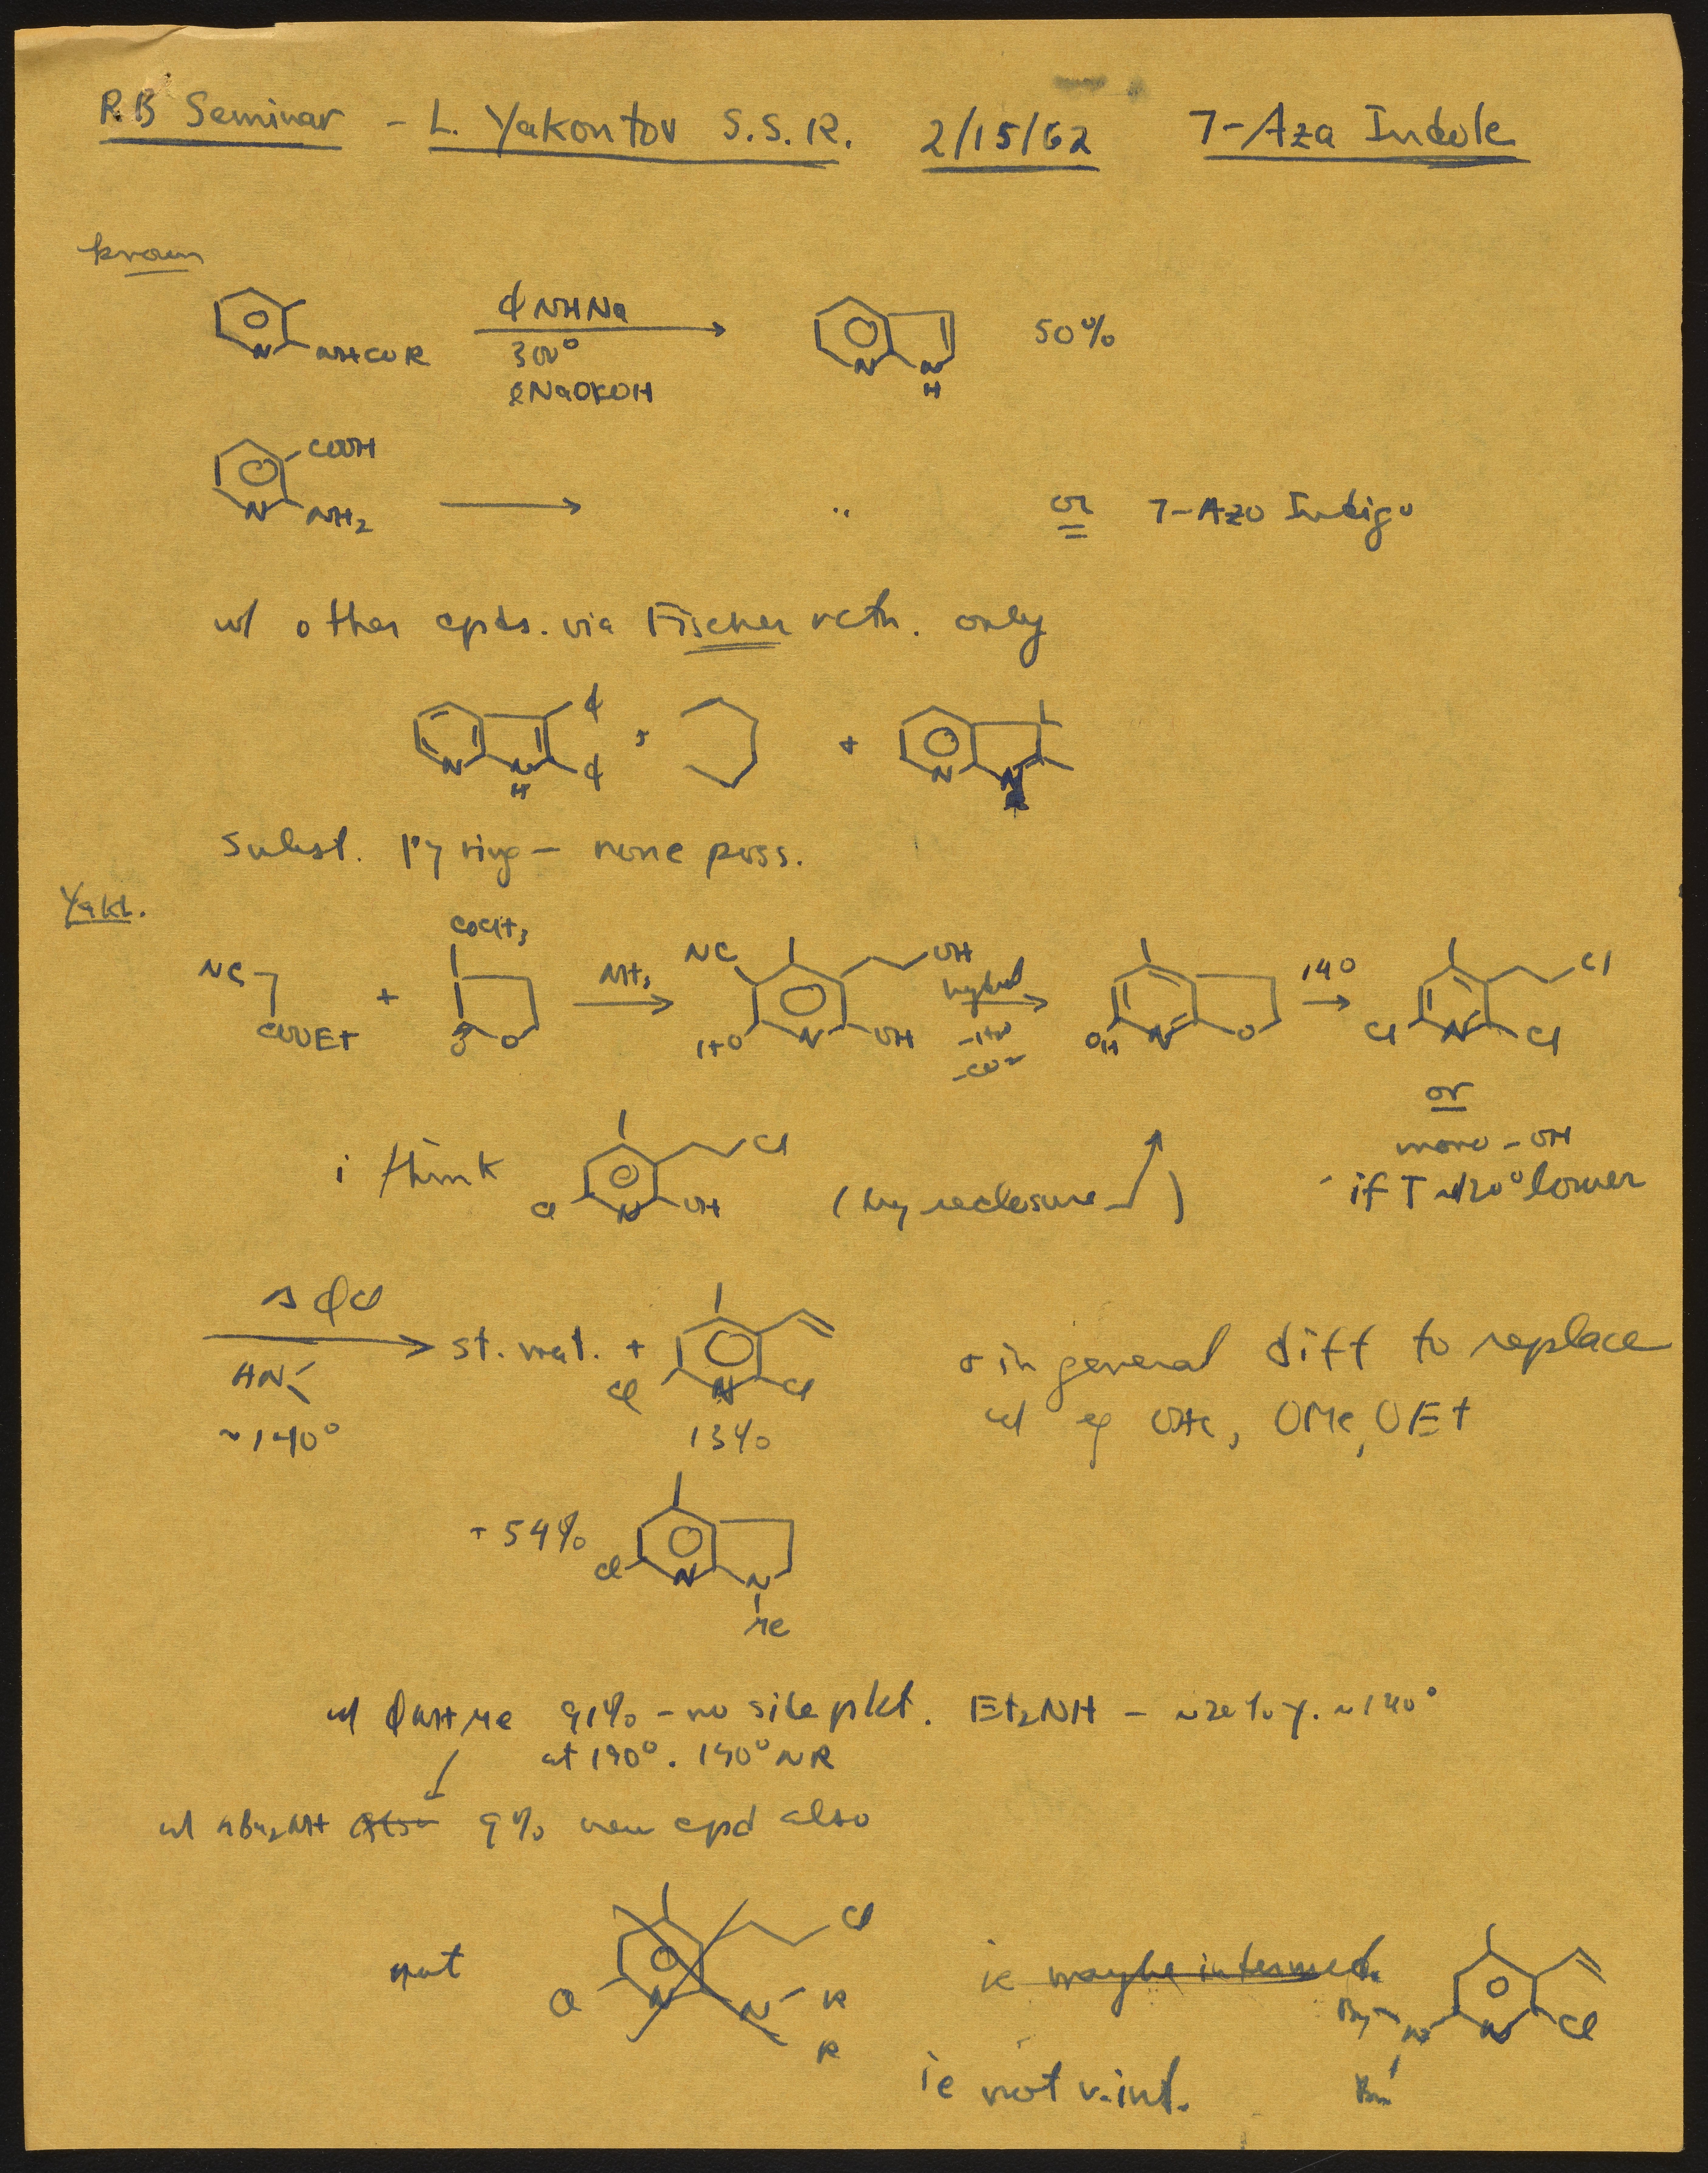 RB Seminar - L. Yakontov S.S.R. 2/15/62 7-Aza Indole
known
ϕNHNa
N NHCOR 300° N N H 50%
COOH
N NH2 " or 7-Azo Indigo
w/ other cpds. via Fischer rctn. only
N N H ϕ ϕ + + N N
subst. py ring - none poss.
Yakl.
NC COOEt + COCH3 O O NH3 NC OH HO N OH -CO2 OH N O 140 Cl Cl N Cl
or
mono-OH
i think Cl Cl N OH (by reclosure ) if T ~120° lower
ϕCl
HN st. mat. + Cl N Cl + in general diff to replace
~140° 13% w/ eg OMe, OEt
+ 54% Cl N N Me
w/ ϕNHMe 91% - no side pdt. Et2NH - ~20% y. ~140°
at 190°. 140° NR
w/ nBu2NH also 9% new cpd also
not Cl Cl N N R R ie maybe intermed. Bu N Bu N Cl
ie not v. int.